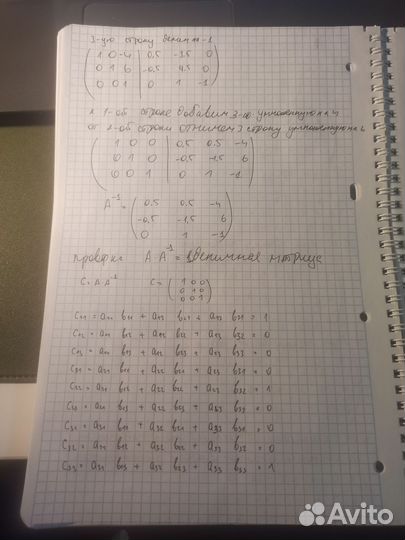 3-ую строку делим на -1
1 0 -4 | 0,5 -3,5 0
0 1 6 | -0,5 4,5 0
0 0 1 | 0 1 -1
к 1-ой строке добавим 3-ю умноженную на 4
от 2-ой строки отнимем 3 строку умноженную на 6
1 0 0 | 0,5 0,5 -4
0 1 0 | -0,5 -1,5 6
0 0 1 | 0 1 -1
A⁻¹ = 0,5 0,5 -4
-0,5 -1,5 6
0 1 -1
проверка A·A⁻¹ = единичная матрица
C = A·A⁻¹ C = 1 0 0
0 1 0
0 0 1
C₁₁ = a₁₁ b₁₁ + a₁₂ b₂₁ + a₁₃ b₃₁ = 1
C₁₂ = a₁₁ b₁₂ + a₁₂ b₂₂ + a₁₃ b₃₂ = 0
C₁₃ = a₁₁ b₁₃ + a₁₂ b₂₃ + a₁₃ b₃₃ = 0
C₂₁ = a₂₁ b₁₁ + a₂₂ b₂₁ + a₂₃ b₃₁ = 0
C₂₂ = a₂₁ b₁₂ + a₂₂ b₂₂ + a₂₃ b₃₂ = 1
C₂₃ = a₂₁ b₁₃ + a₂₂ b₂₃ + a₂₃ b₃₃ = 0
C₃₁ = a₃₁ b₁₁ + a₃₂ b₂₁ + a₃₃ b₃₁ = 0
C₃₂ = a₃₁ b₁₂ + a₃₂ b₂₂ + a₃₃ b₃₂ = 0
C₃₃ = a₃₁ b₁₃ + a₃₂ b₂₃ + a₃₃ b₃₃ = 1
Avito